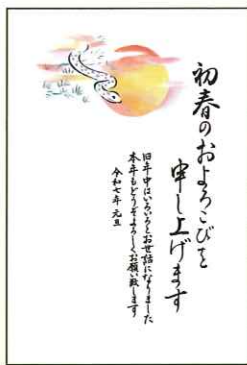 初春のおよろこびを
申し上げます
旧年中はいろいろとお世話になりました
本年もどうぞよろしくお願い致します
令和七年 元旦